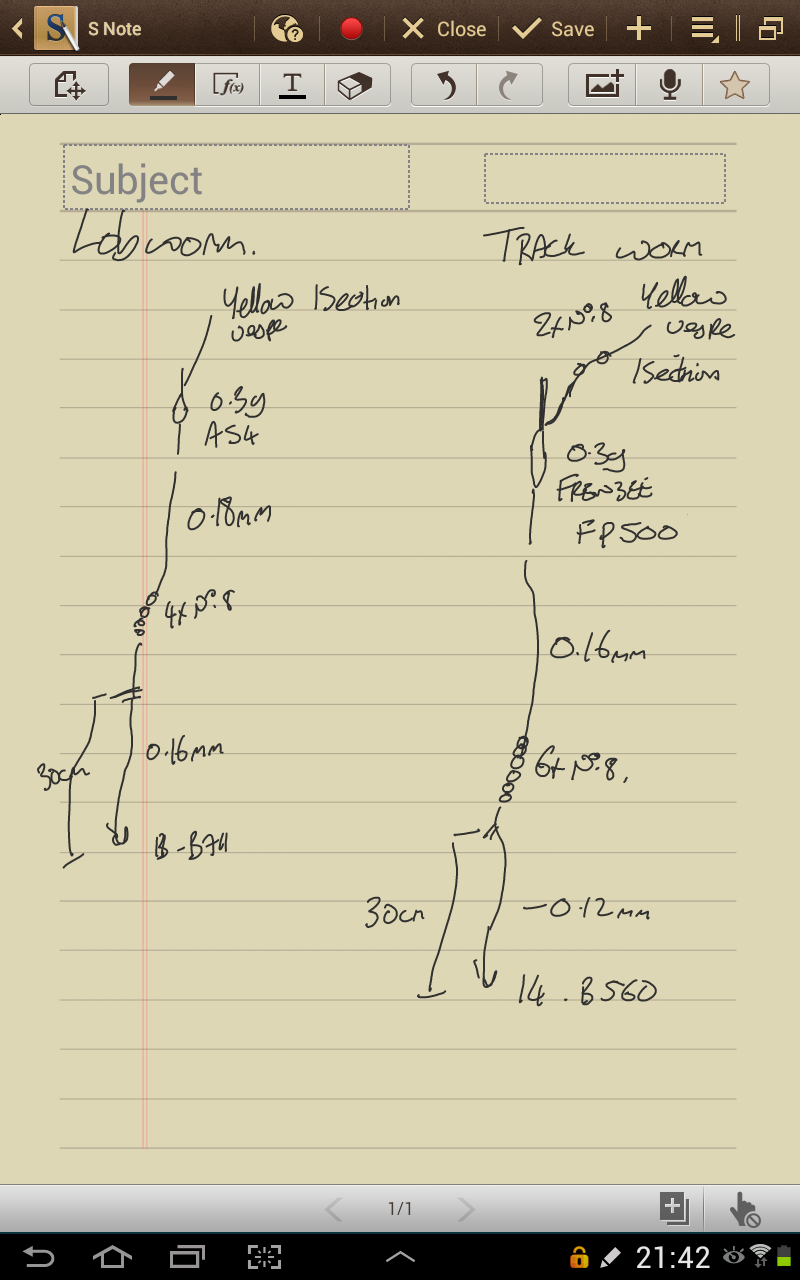 S Note
Close
Save
f(x)
T
Subject
Lobworm.
Yellow 1Section
vespe
0.3g
AS4
0.18mm
4x Nº.8
0.16mm
30cm
B-B74
TRACK WORM
2x Nº.8
Yellow
vespe
1Section
0.3g
FRENZEE
FP500
0.16mm
6x Nº.8,
30cm
-0.12mm
14. B560
1/1
21:42